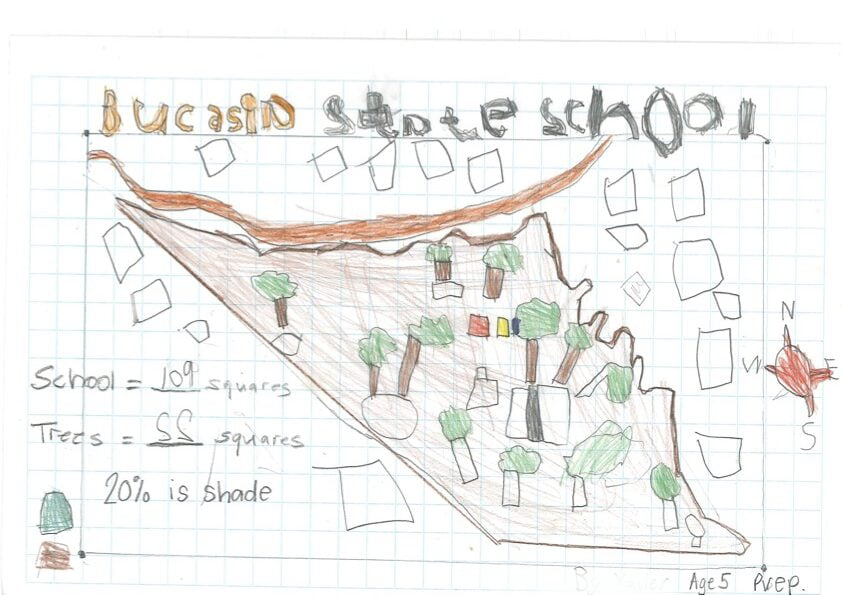 Bucasia State School
N
W E
S
School = 109 squares
Trees = 22 squares
20% is shade
By Age 5 Prep.